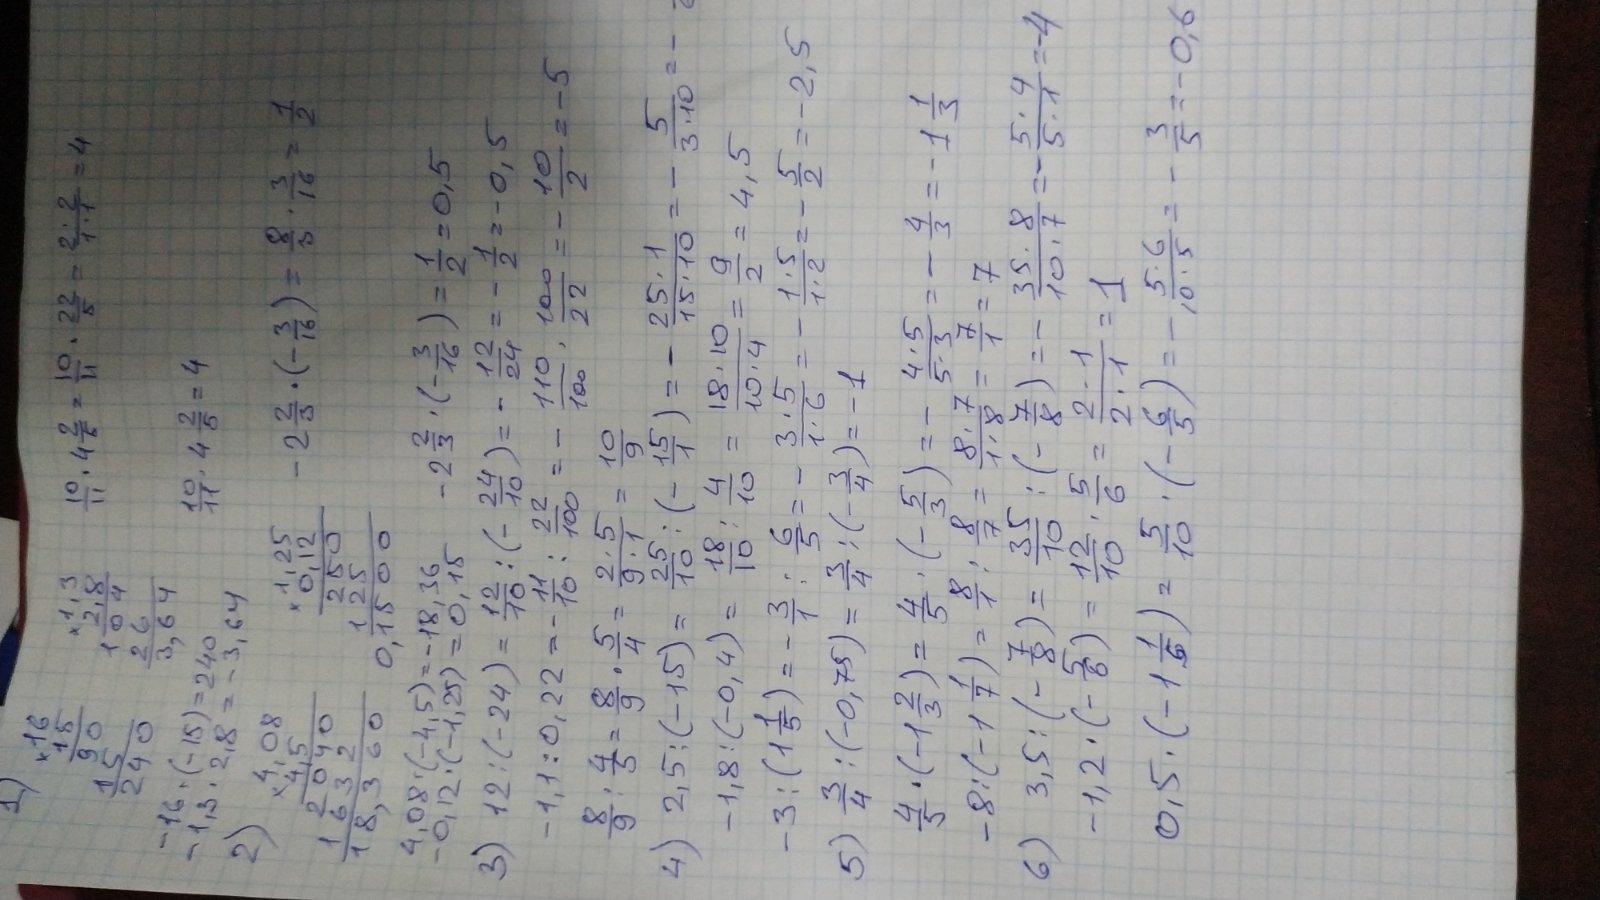 1)
×16
15
90
15
240
×1,3
2,8
104
26
3,64
10/11 · 4 2/5 = 10/11 · 22/5 = 2·2/1·1 = 4
-16·(-15)=240
-1,3·2,8=-3,64
10/11 · 4 2/5 = 4
2)
×4,08
4,5
2040
1632
18,360
×1,25
0,12
250
125
0,1500
-2 2/3 · (- 3/16) = 8/3 · 3/16 = 1/2
4,08·(-4,5)=-18,36
-0,12·(-1,25)=0,15
-2 2/3 · (- 3/16) = 1/2 = 0,5
3) 12:(-24)= 12/10 : (- 24/10) = - 12/24 = - 1/2 = -0,5
-1,1:0,22 = - 11/10 : 22/100 = - 110/100 · 100/22 = - 10/2 = -5
8/9 : 4/5 = 8/9 · 5/4 = 2·5/9·1 = 10/9
4) 2,5:(-15)= 25/10 : (- 15/1) = - 25·1/15·10 = - 5/3·10 = -
-1,8:(-0,4)= 18/10 : 4/10 = 18·10/10·4 = 9/2 = 4,5
-3:(1 1/5) = - 3/1 : 6/5 = - 3·5/1·6 = - 1·5/1·2 = - 5/2 = -2,5
5) 3/4 : (-0,75) = 3/4 : (- 3/4) = -1
4/5 · (-1 2/3) = 4/5 · (- 5/3) = - 4·5/5·3 = - 4/3 = -1 1/3
-8:(-1 1/7) = 8/1 : 8/7 = 8·7/1·8 = 7/1 = 7
6) 3,5:(- 7/8) = 35/10 : (- 7/8) = - 35·8/10·7 = - 5·4/5·1 = -4
-1,2·(- 5/6) = 12/10 · 5/6 = 2·1/2·1 = 1
0,5·(-1 1/5) = 5/10 · (- 6/5) = - 5·6/10·5 = - 3/5 = -0,6